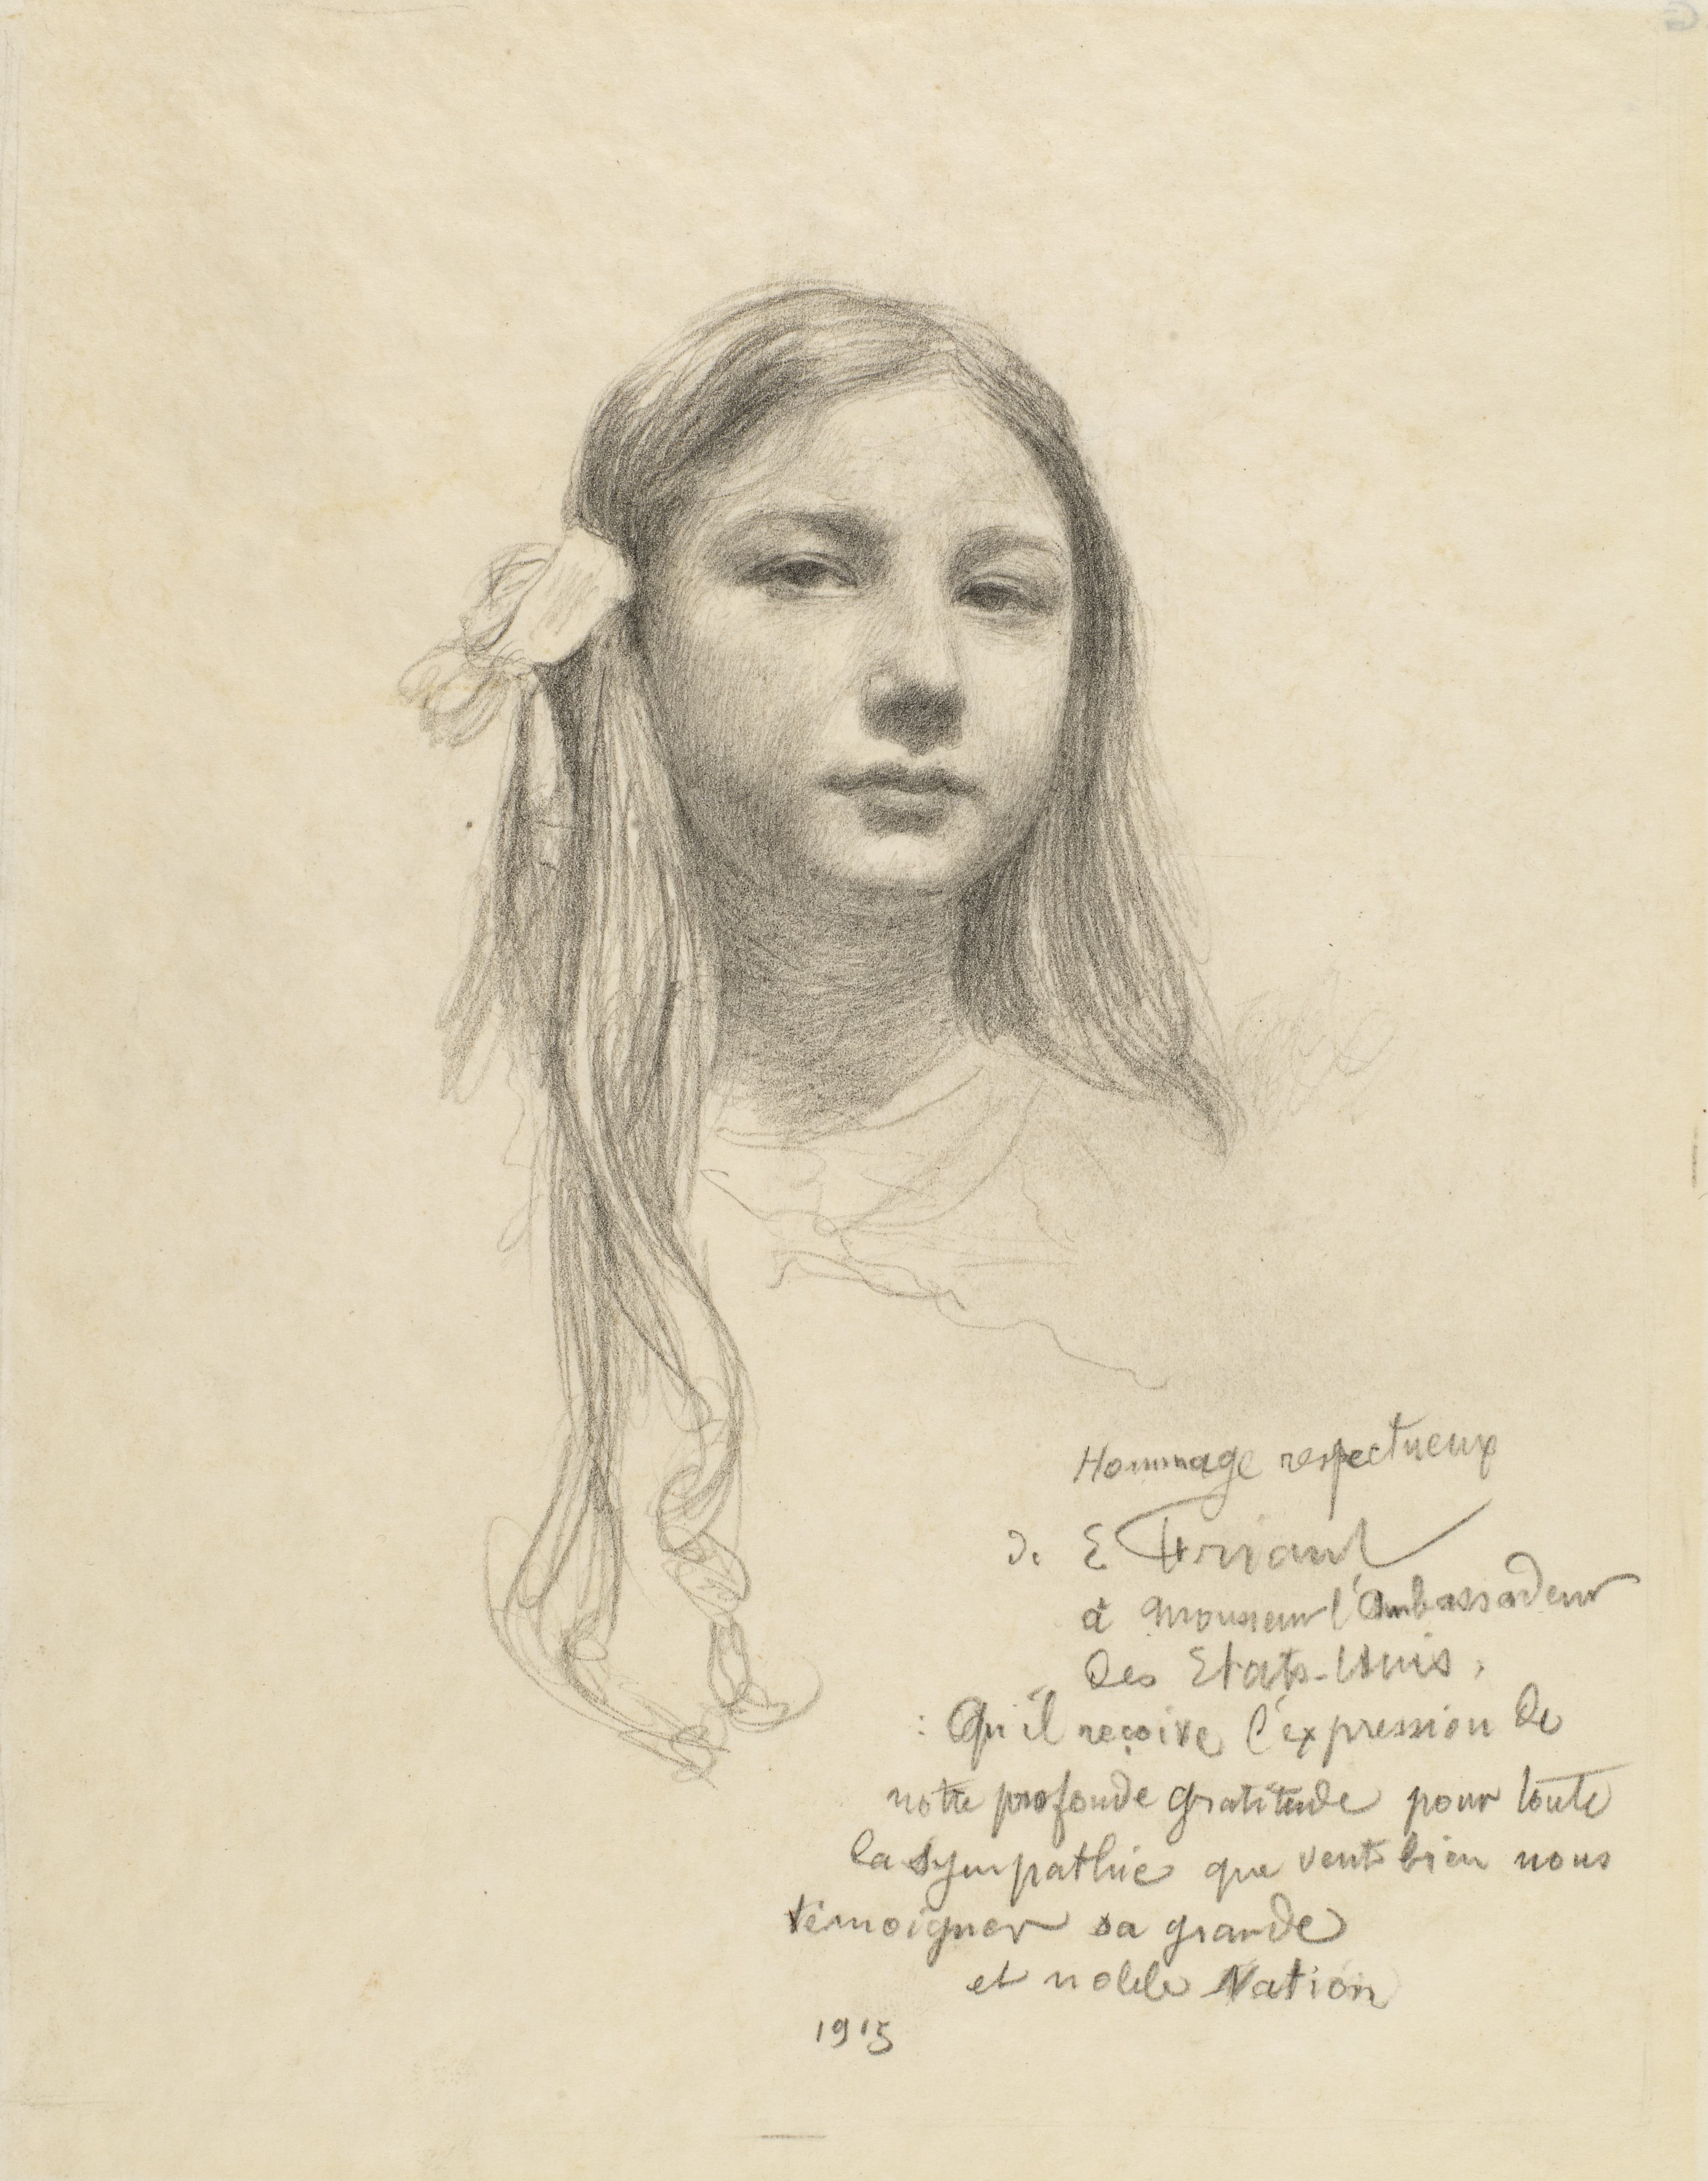 Hommage respectueux
de E Friant
à Monsieur l'Ambassadeur
des Etats-Unis,
: Qu'il reçoive l'expression de
notre profonde gratitude pour toute
la sympathie que veut bien nous
témoigner sa grande
et noble Nation
1915